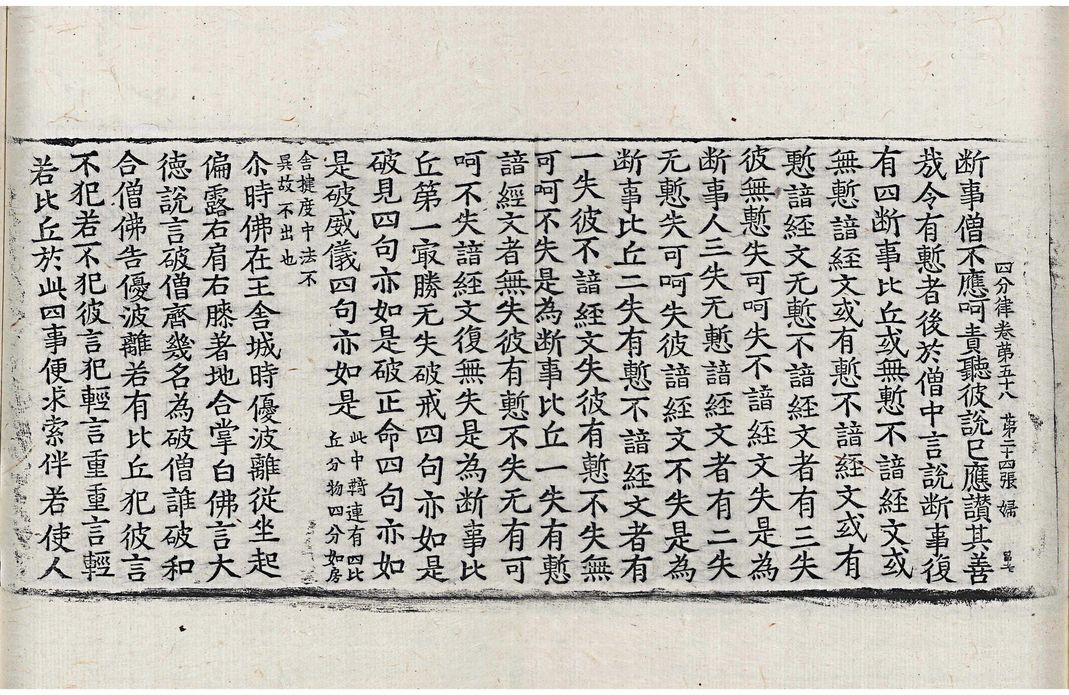 断事僧不應呵責聽彼說已應讃其善
四分律卷苐五十八 苐二十四張 婦
㢤令有慙者後於僧中言說断事復
有四断事比丘或無慙不諳經文或
無慙諳經文或有慙不諳經文或有
慙諳經文无慙不諳經文者有三失
彼無慙失可呵失不諳經文失是為
断事人三失无慙諳經文者有二失
无慙失可呵失彼諳經文不失是為
断事比丘二失有慙不諳經文者有
一失彼不諳經文失彼有慙不失無
可呵不失是為断事比丘一失有慙
諳經文者無失彼有慙不失无有可
呵不失諳經文復無失是為断事比
丘第一㝡勝无失破戒四句亦如是
破見四句亦如是破正命四句亦如
是破威儀四句亦如是
此中轉連有四比
丘分物四分如房
舍揵度中法不
異故不出也
尒時佛在王舍城時優波離從坐起
偏露右肩右膝著地合掌白佛言大
德說言破僧齊幾名為破僧誰破和
合僧佛告優波離若有比丘犯彼言
不犯若不犯彼言犯輕言重重言輕
若比丘於此四事便求索伴若使人